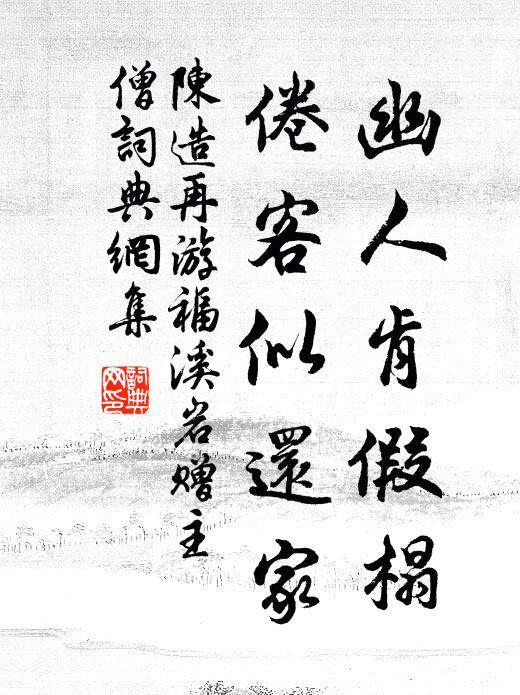 幽人肯假榻
倦客似還家
陳造再游福溪岩贈主
僧詞典網集
詞典網印